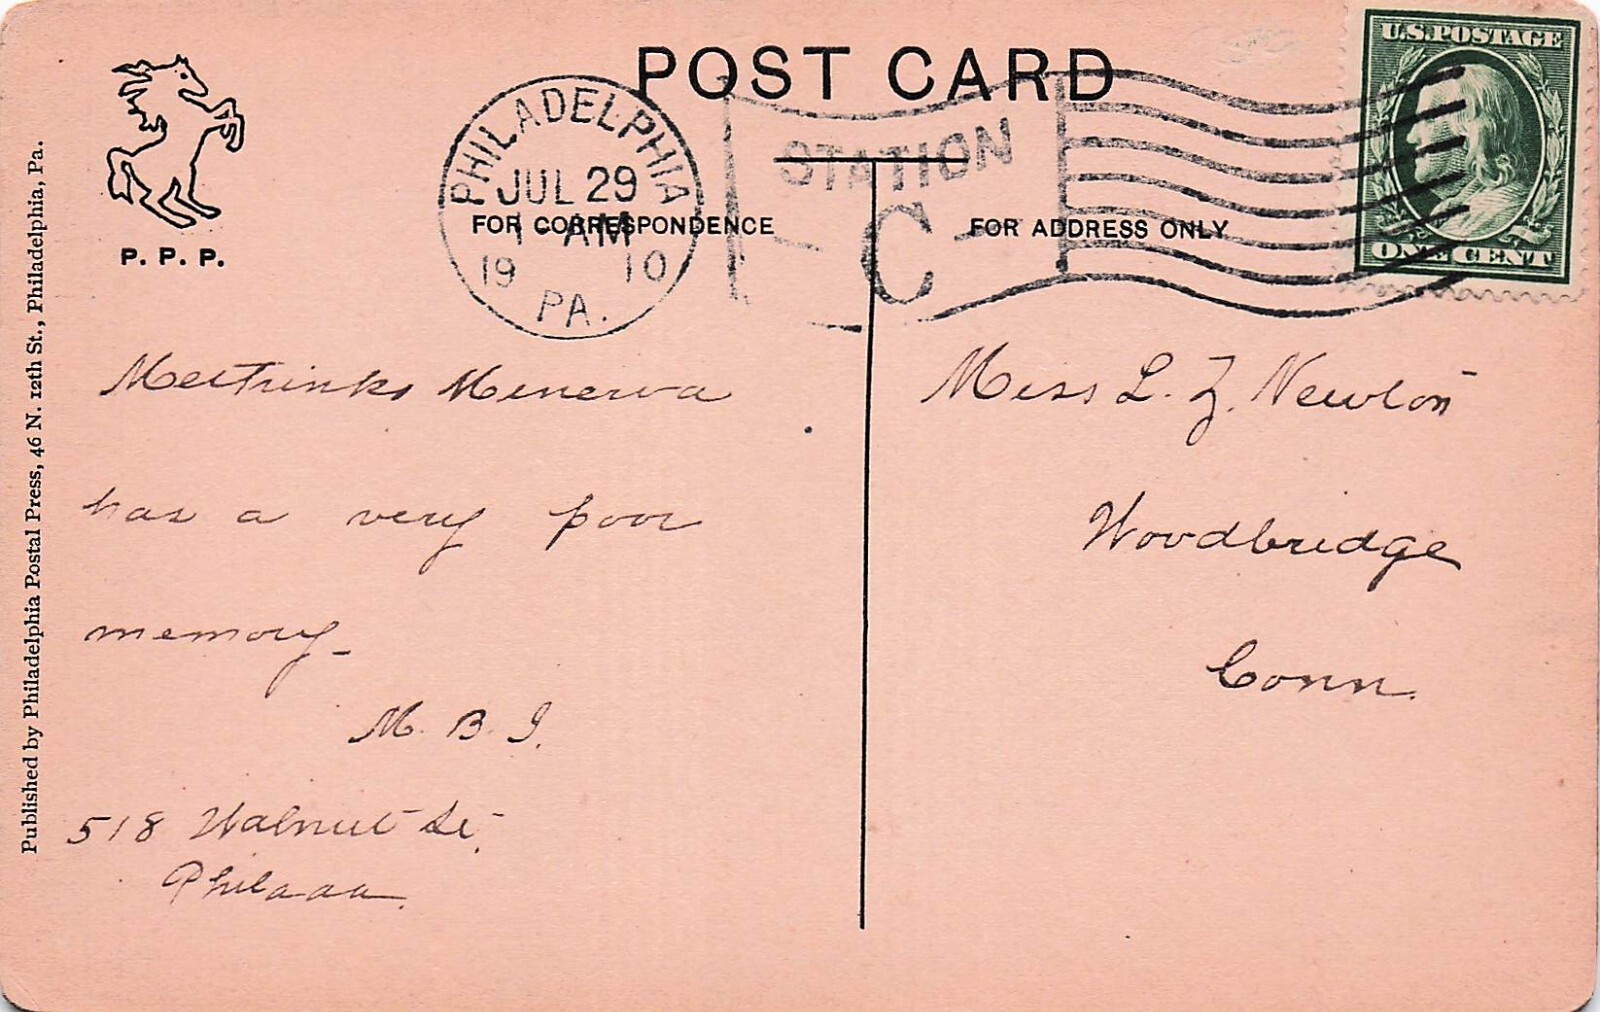 POST CARD
U.S. POSTAGE
ONE CENT
PHILADELPHIA
JUL 29
1 AM
19 10
PA.
STATION
C
P. P. P.
FOR CORRESPONDENCE
FOR ADDRESS ONLY
Published by Philadelphia Postal Press, 46 N. 12th St., Philadelphia, Pa.
Methinks Minerva
has a very poor
memory -
M. B. I.
518 Walnut St.
Phila
Miss L. Z. Newton
Woodbridge
Conn.